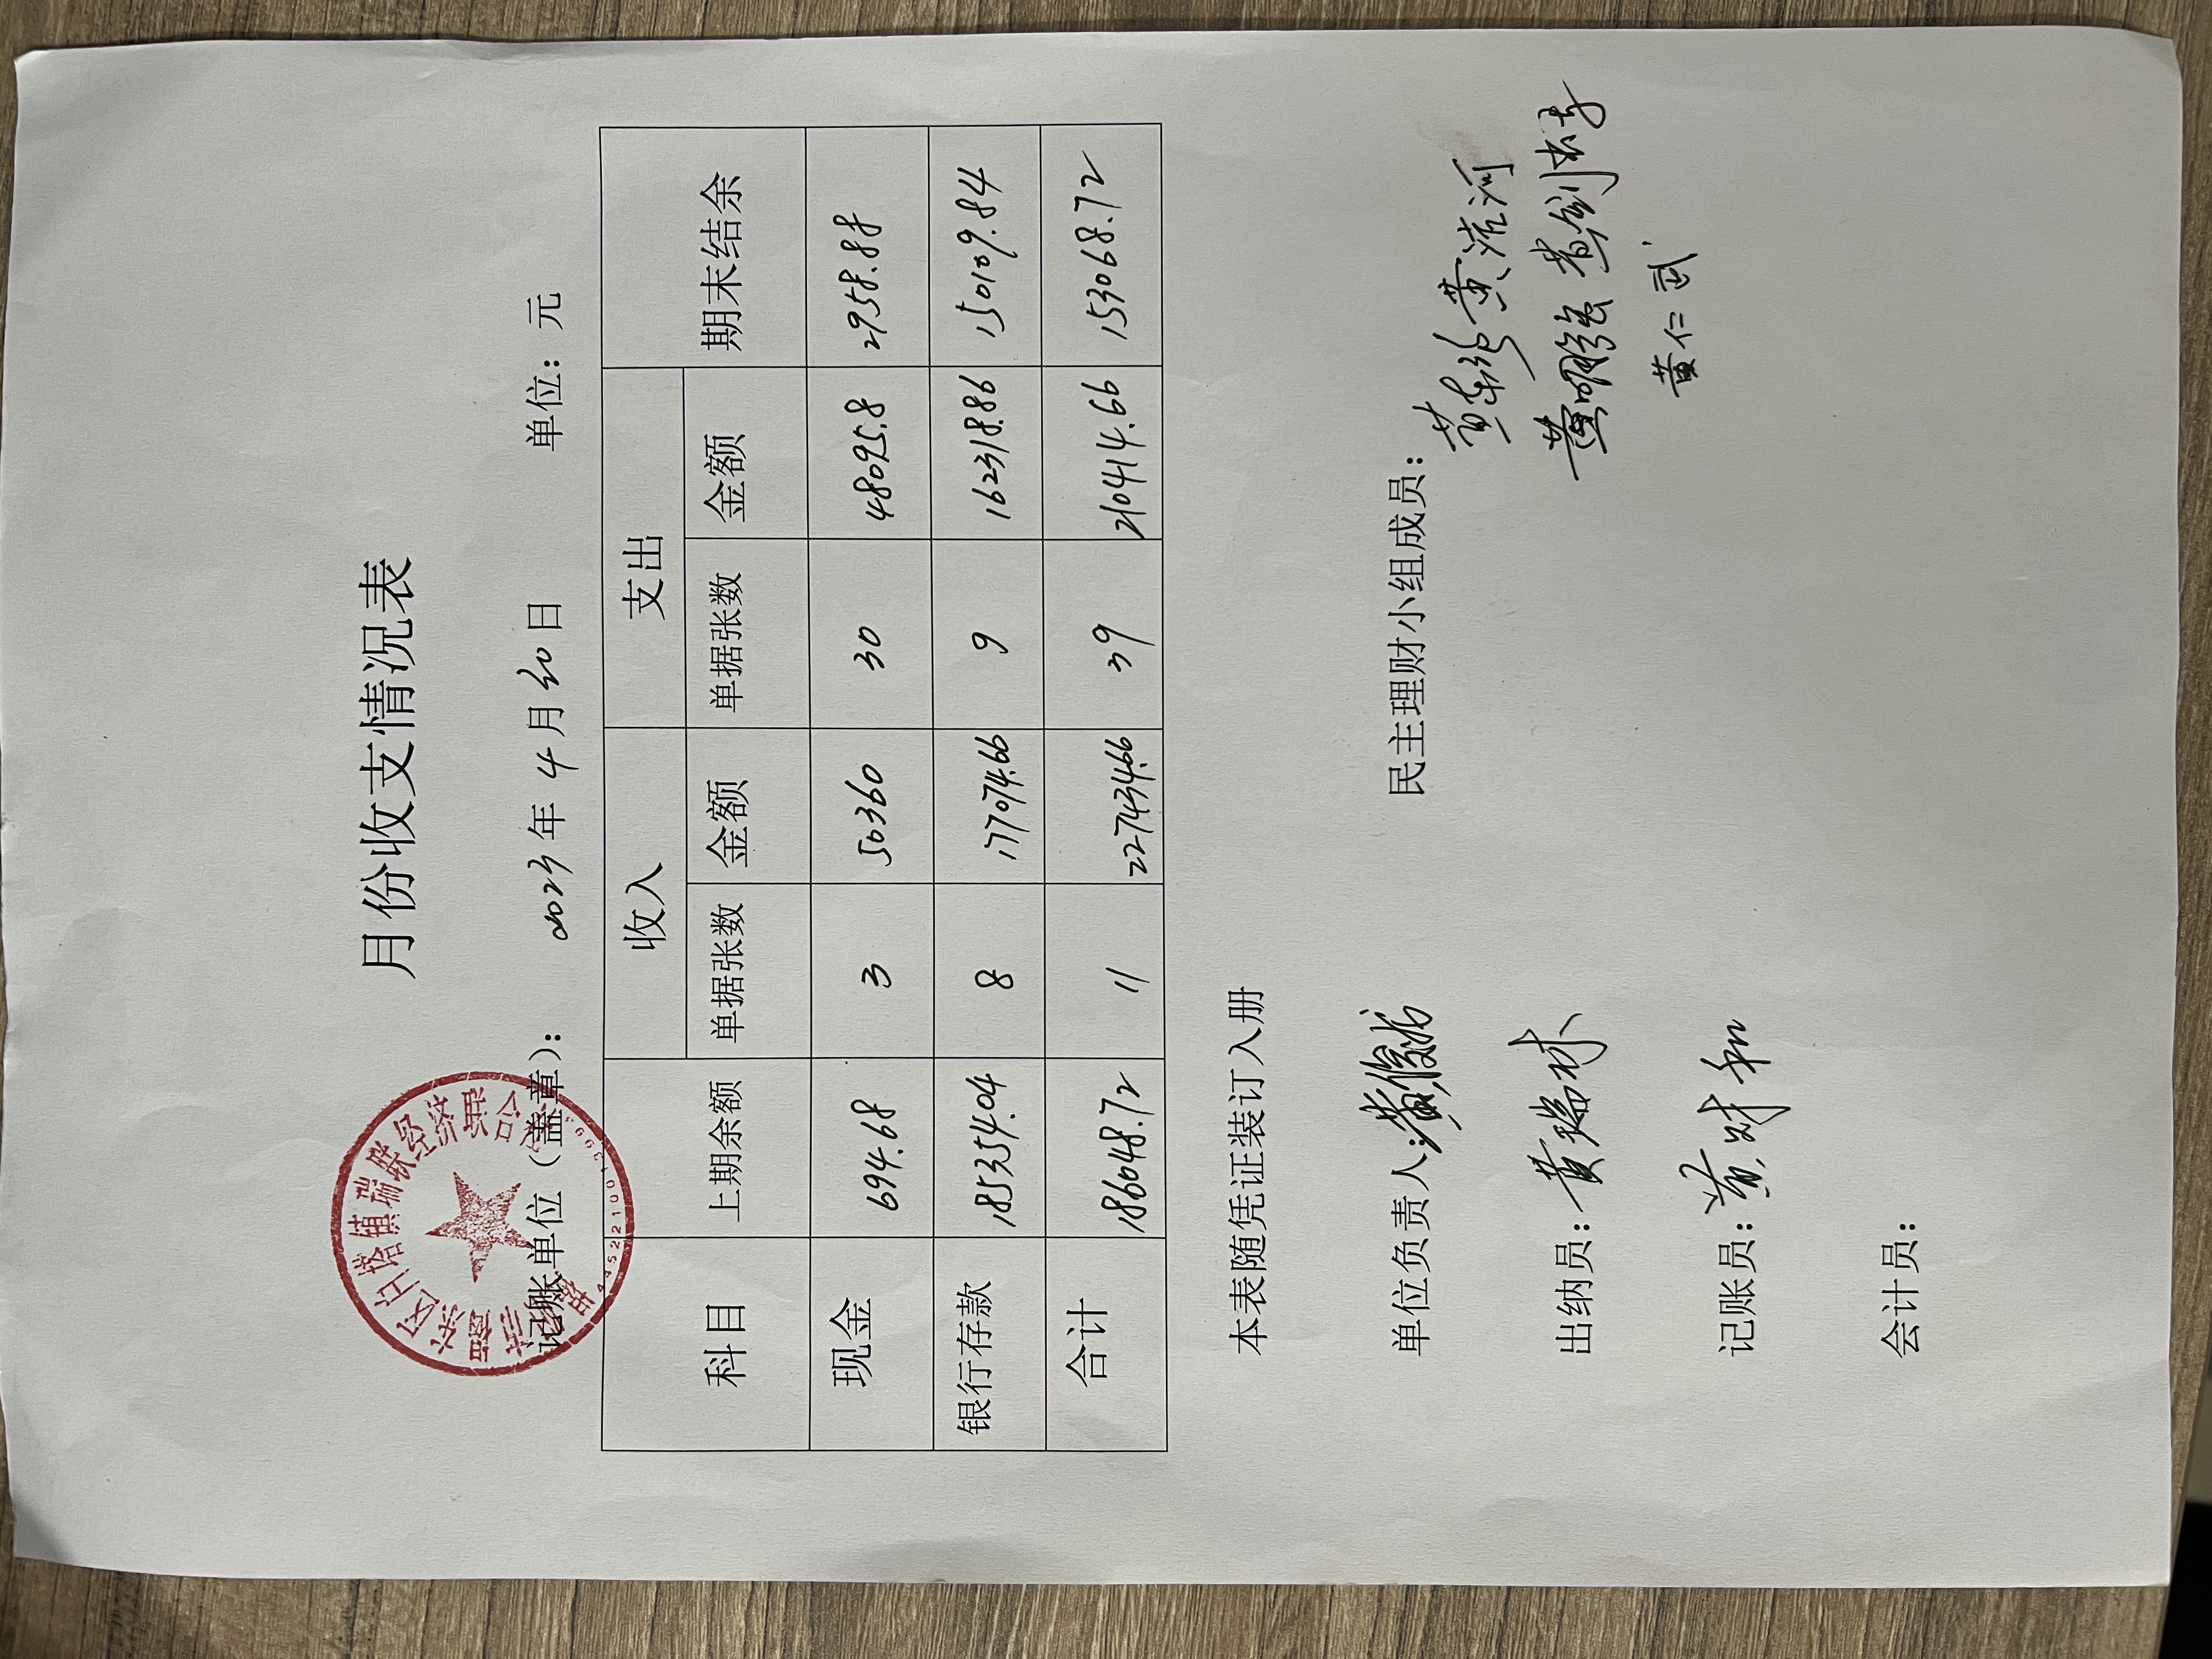 月份收支情况表
揭阳市揭东区白塔镇瑞联经济联合社
记账单位（盖章）： 2023年 4月30日 单位：元
科目 上期余额 收入 支出 期末结余
单据张数 金额 单据张数 金额
现金 694.68 3 50360 30 48095.8 2958.88
银行存款 135354.04 8 177074.66 9 162318.86 150109.84
合计 136048.72 11 227434.66 39 210414.66 153068.72
本表随凭证装订入册
单位负责人： 民主理财小组成员：
出纳员：黄瑞林
记账员：黄财和
会计员：
黄仁武